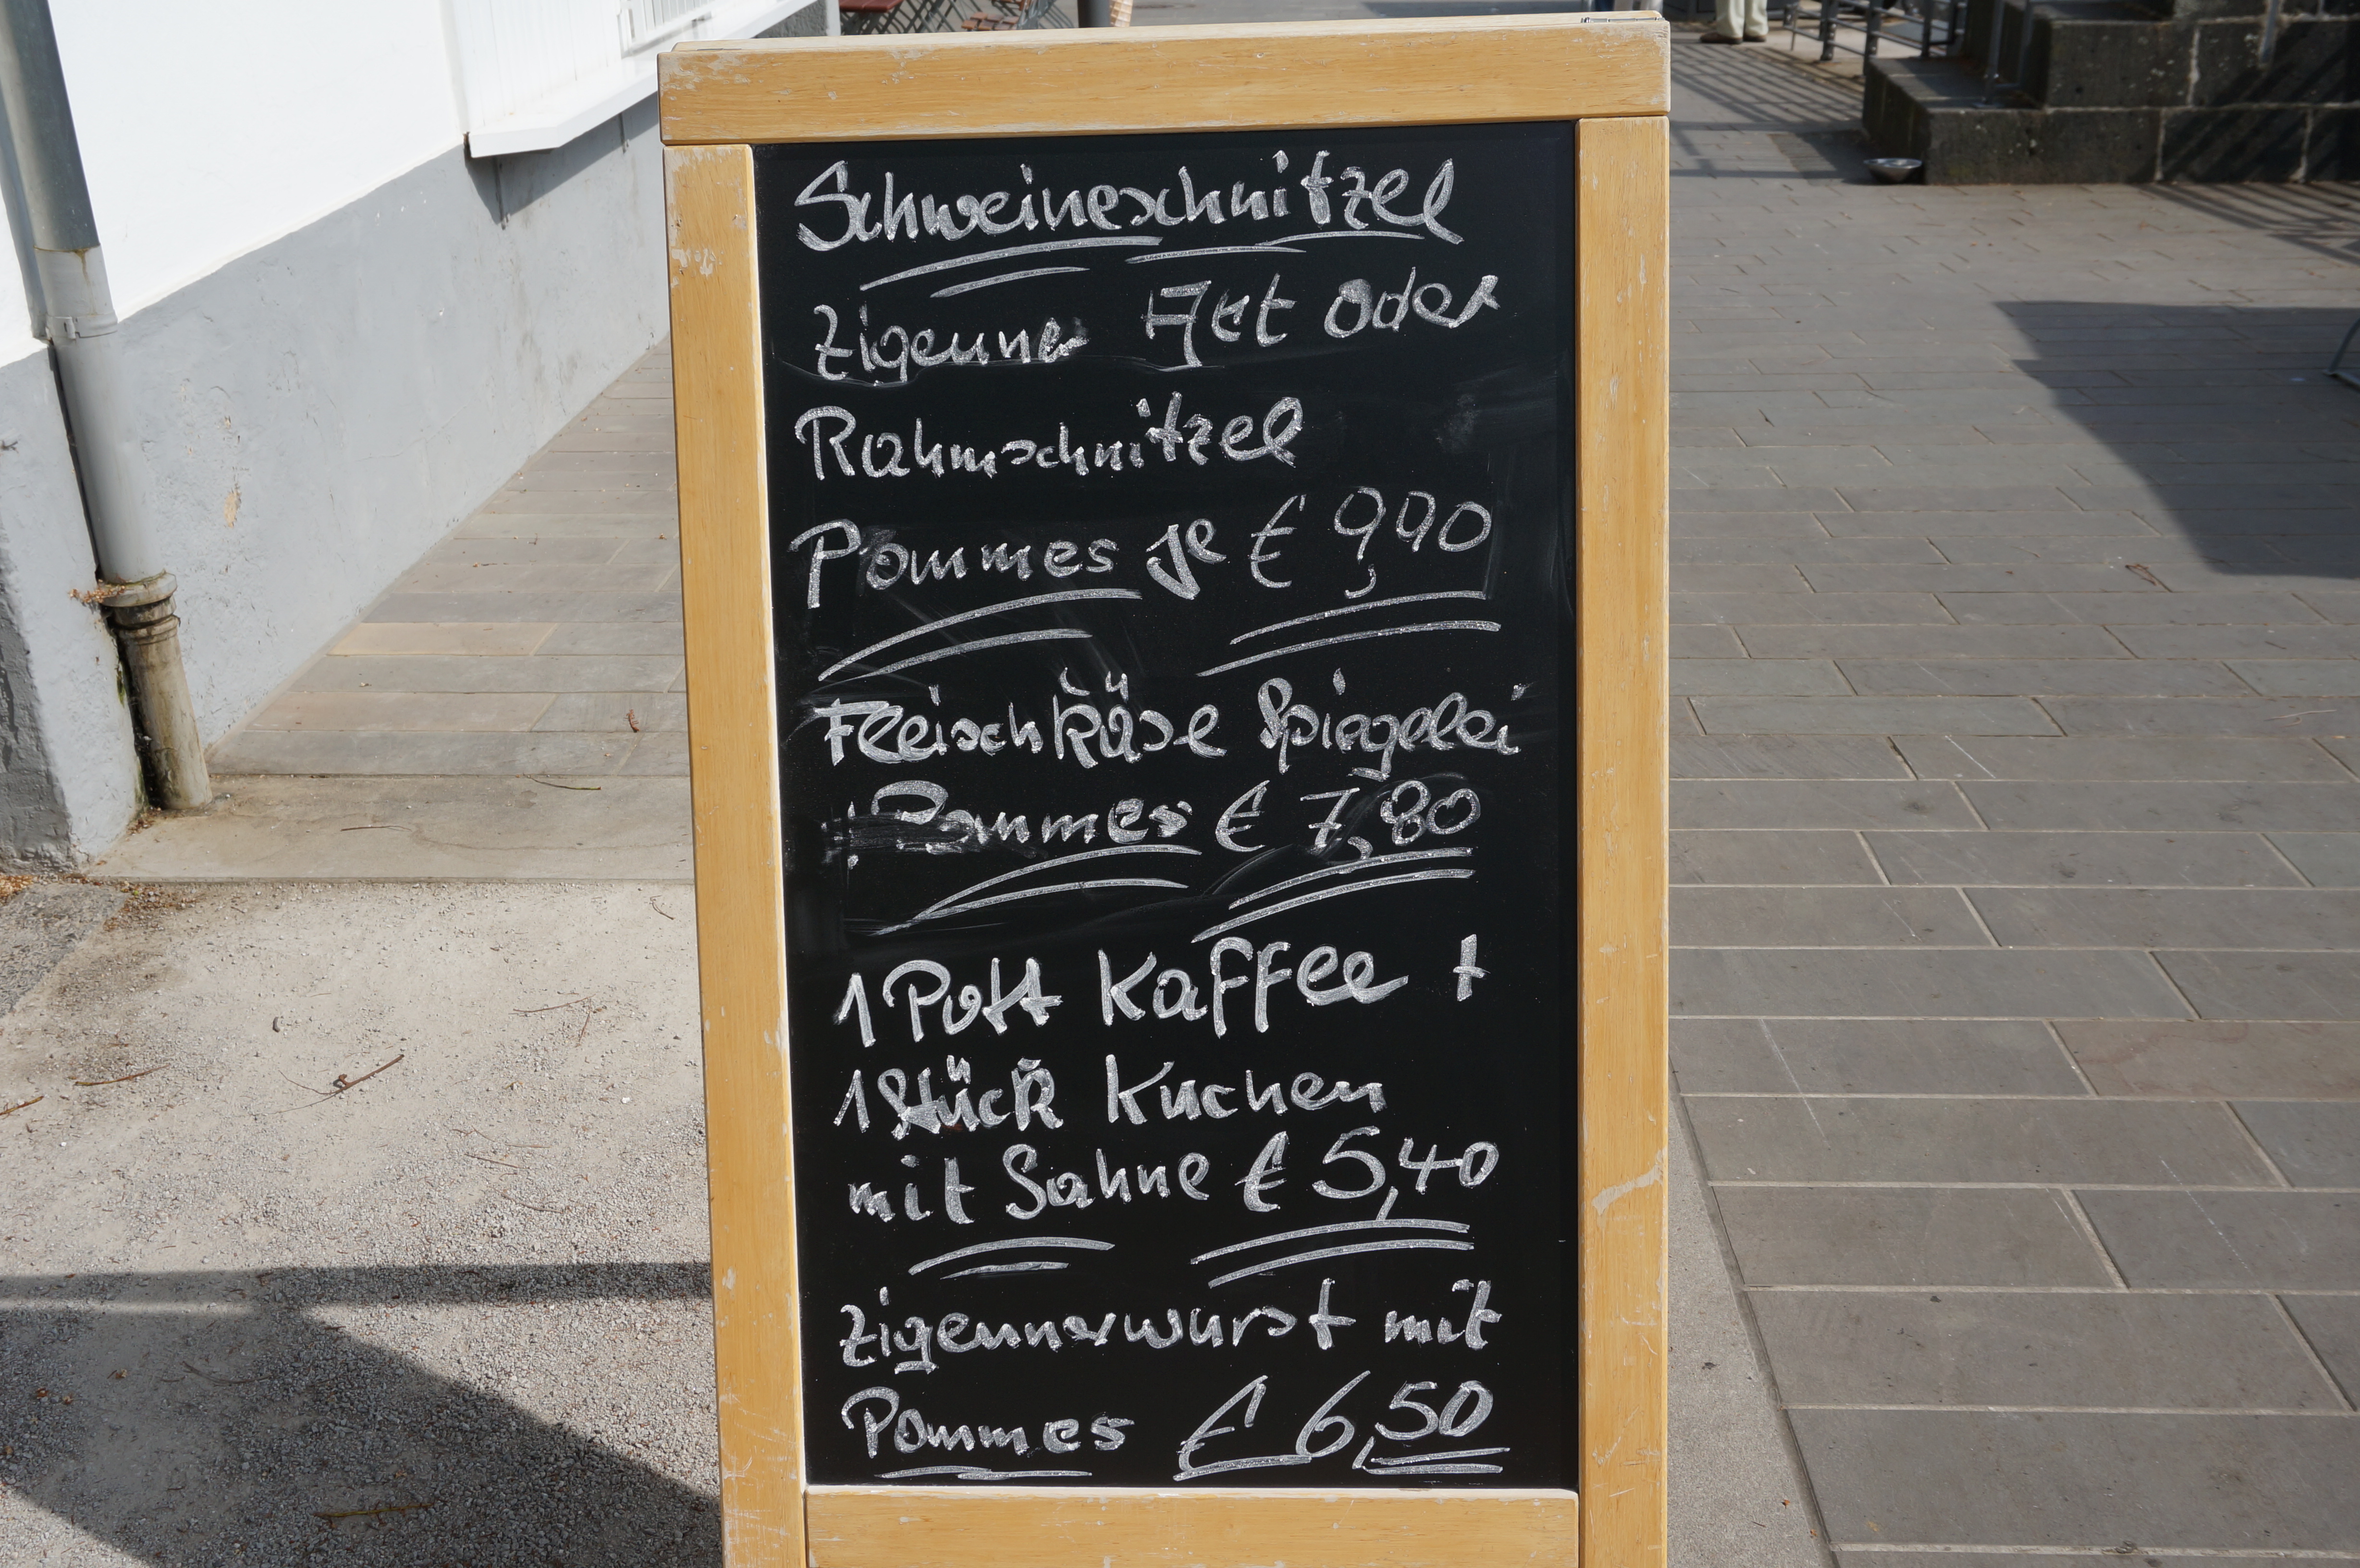 Schweineschnitzel
Zigeuner Art oder
Rahmschnitzel
Pommes je € 9,90
Fleischkäse Spiegelei
Pommes € 7,80
1 Pott Kaffee +
1 Stück Kuchen
mit Sahne € 5,40
Zigeunerwurst mit
Pommes € 6,50